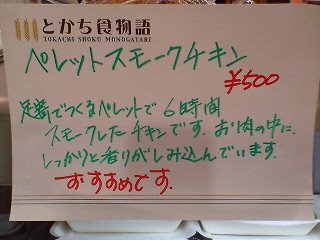 とかち食物語
TOKACHI SHOKU MONOGATARI
ペレットスモークチキン
¥500
足寄でつくるペレットで6時間
スモークしたチキンです。お肉の中に
しっかりと香りがしみ込んでいます。
おすすめです。